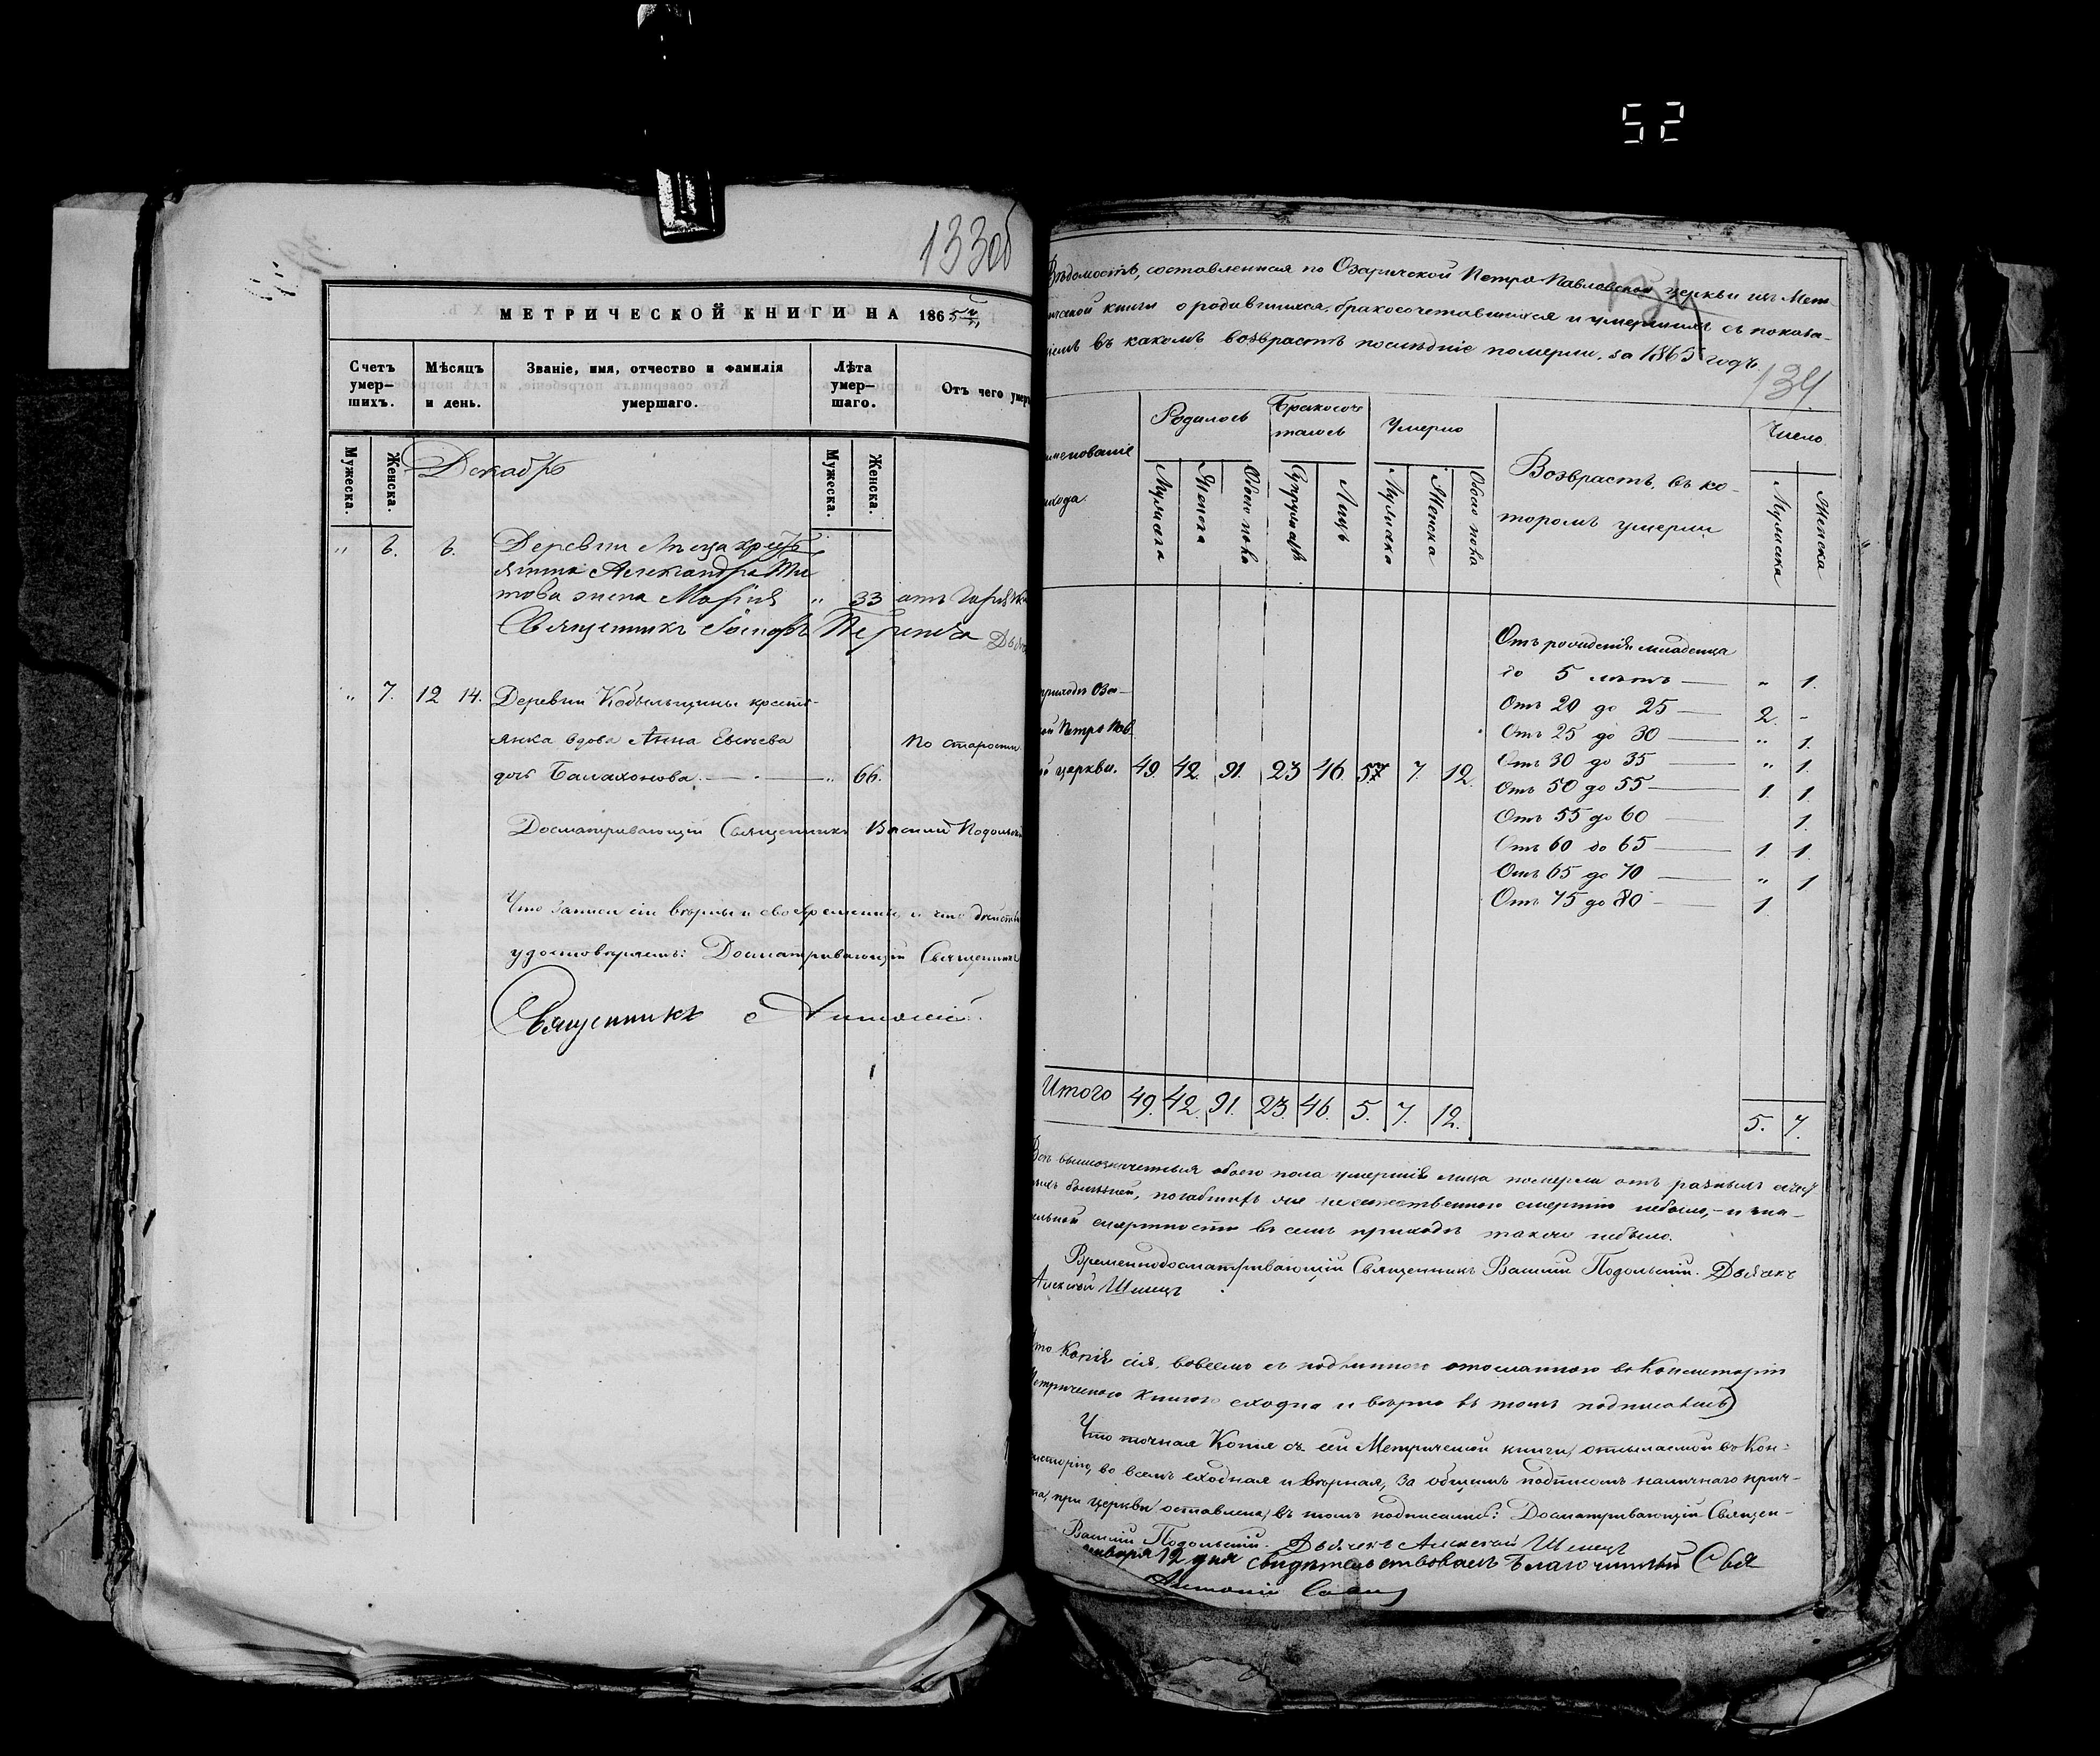 52
133об
МЕТРИЧЕСКОЙ КНИГИ НА 1865
Счетъ умер-шихъ.
Мѣсяцъ и день.
Званіе, имя, отчество и фамилія умершаго.
Лѣта умер-шаго.
Отъ чего умер
Мужеска.
Женска.
Мужеска.
Женска.
Декабрь
„ 6. 6. Деревни крестъ
янина Александра Ти
това жена Марія „ 33 отъ
Священникъ Іосифъ
„ 7. 12 14. Деревни Кобыльщины крестъ-
янка вдова Анна Евсѣева По старости
дочь Балахонова. — „ 66.
Досматривающій Священникъ Василій Подольскій
Что записи сіи вѣрны и своевременны и что
удостовѣряемъ: Досматривающій Священникъ
Священникъ Антоній
134
Вѣдомость, составленная по Озаричской Петро-Павловской церкви изъ Мет-
рической книги о родившихся, бракосочетавшихся и умершихъ съ показа-
ніемъ въ какомъ возврастѣ послѣдніе померли, за 1865 годъ.
134
именованіе
прихода.
Родилось
Бракосоче
талось
Умерло
Возврастъ, въ ко-
торомъ умерли
Число
Мужеска
Женска
Обоего пола
Супружествъ
Лицъ
Мужеска
Женска
Обоего пола
Мужеска
Женска
Отъ рожденія младенца
до 5 лѣтъ — „ 1.
Отъ 20 до 25 — 2. „
Отъ 25 до 30 — „ 1.
Отъ 30 до 35 — „ 1.
Отъ 50 до 55 — 1. 1.
Отъ 55 до 60 1.
Отъ 60 до 65 — 1. 1.
Отъ 65 до 70 — „ 1
Отъ 75 до 80 — 1.
приходъ Оза-
ой Петро Пав
й церкви. 49. 42. 91. 23 46. 5 7. 12.
Итого 49. 42. 91. 23. 46. 5. 7. 12. 5. 7.
Всѣ вышеозначенныя обоего пола умершіе лица померли отъ разныхъ
болѣзней, погибшихъ не естественною смертію небыло, — и зна-
ельной смертности въ семъ приходѣ также небыло.
Временнодосматривающій Священникъ Василій Подольскій. Дьячекъ
Алексѣй Шимецъ
Что Копія сія, вовсемъ съ подлинною отосланною въ Консисторію
Метрическою книгою сходна и вѣрна въ томъ подписались)
Что точная Копія съ сей Метрической книги, отсылаемой въ Кон-
систорію, во всемъ сходная и вѣрная, за общимъ подписомъ наличнаго прич-
та, при церкви оставлена, въ томъ подписались: Досматривающій Священ-
Василій Подольскій. Дьячекъ Алексѣй Шимецъ
января 12 дня свидѣтельствовалъ Благочинный Свя
Антоній